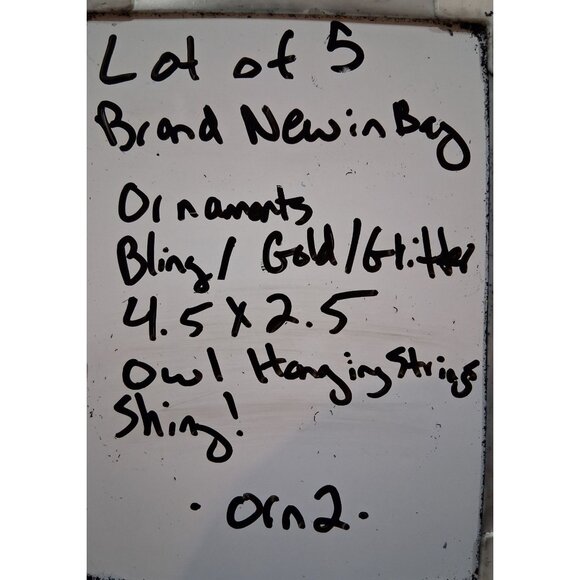 Lot of 5
Brand New in Bag
Ornaments
Bling/ Gold/Glitter
4.5 x 2.5
Owl Hanging Strings
Shiny!
· Orn2 ·